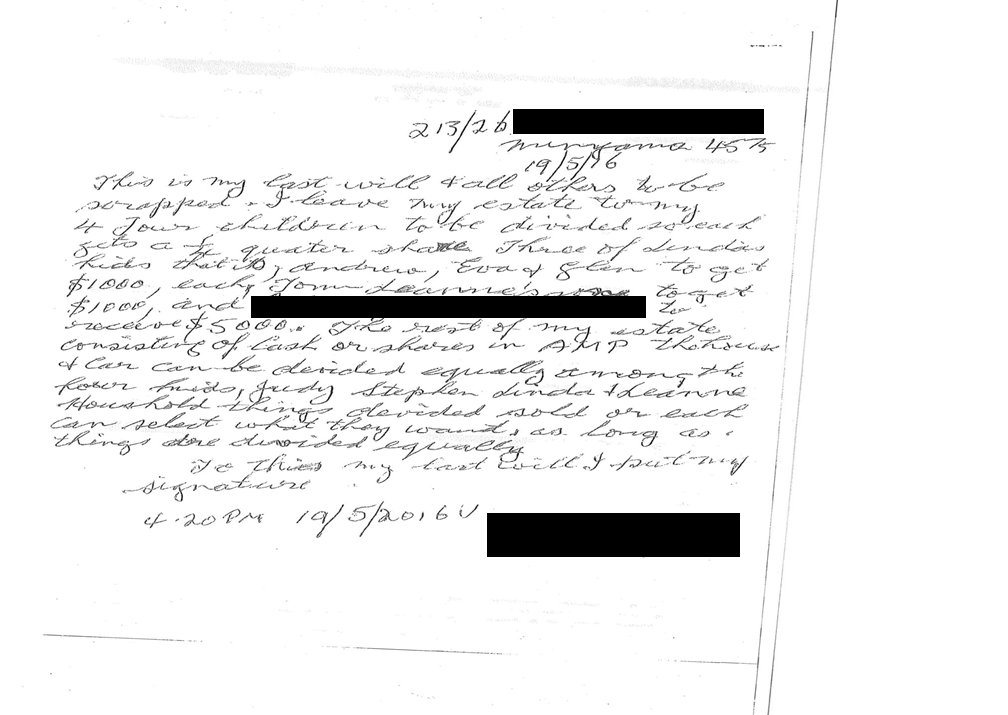 213/26
Minyama 4575
19/5/16
This is my last will & all others to be
scrapped. I leave my estate to my
4 four children to be divided so each
gets a 1/4 quater share Three of Lindas
kids that is, Andrew, Eva & Glen to get
$1000, each, Tom Leanne's to get
$1000, and to
receive $5000. The rest of my estate
consisting of Cash or shares in AMP the house
& Car can be devided equally among the
four kids, Judy Stephen Linda & Leanne
Houshold things devided sold or each
can select what they want, as long as
things are divided equally
To this my last will I put my
signature
4.20PM 19/5/2016